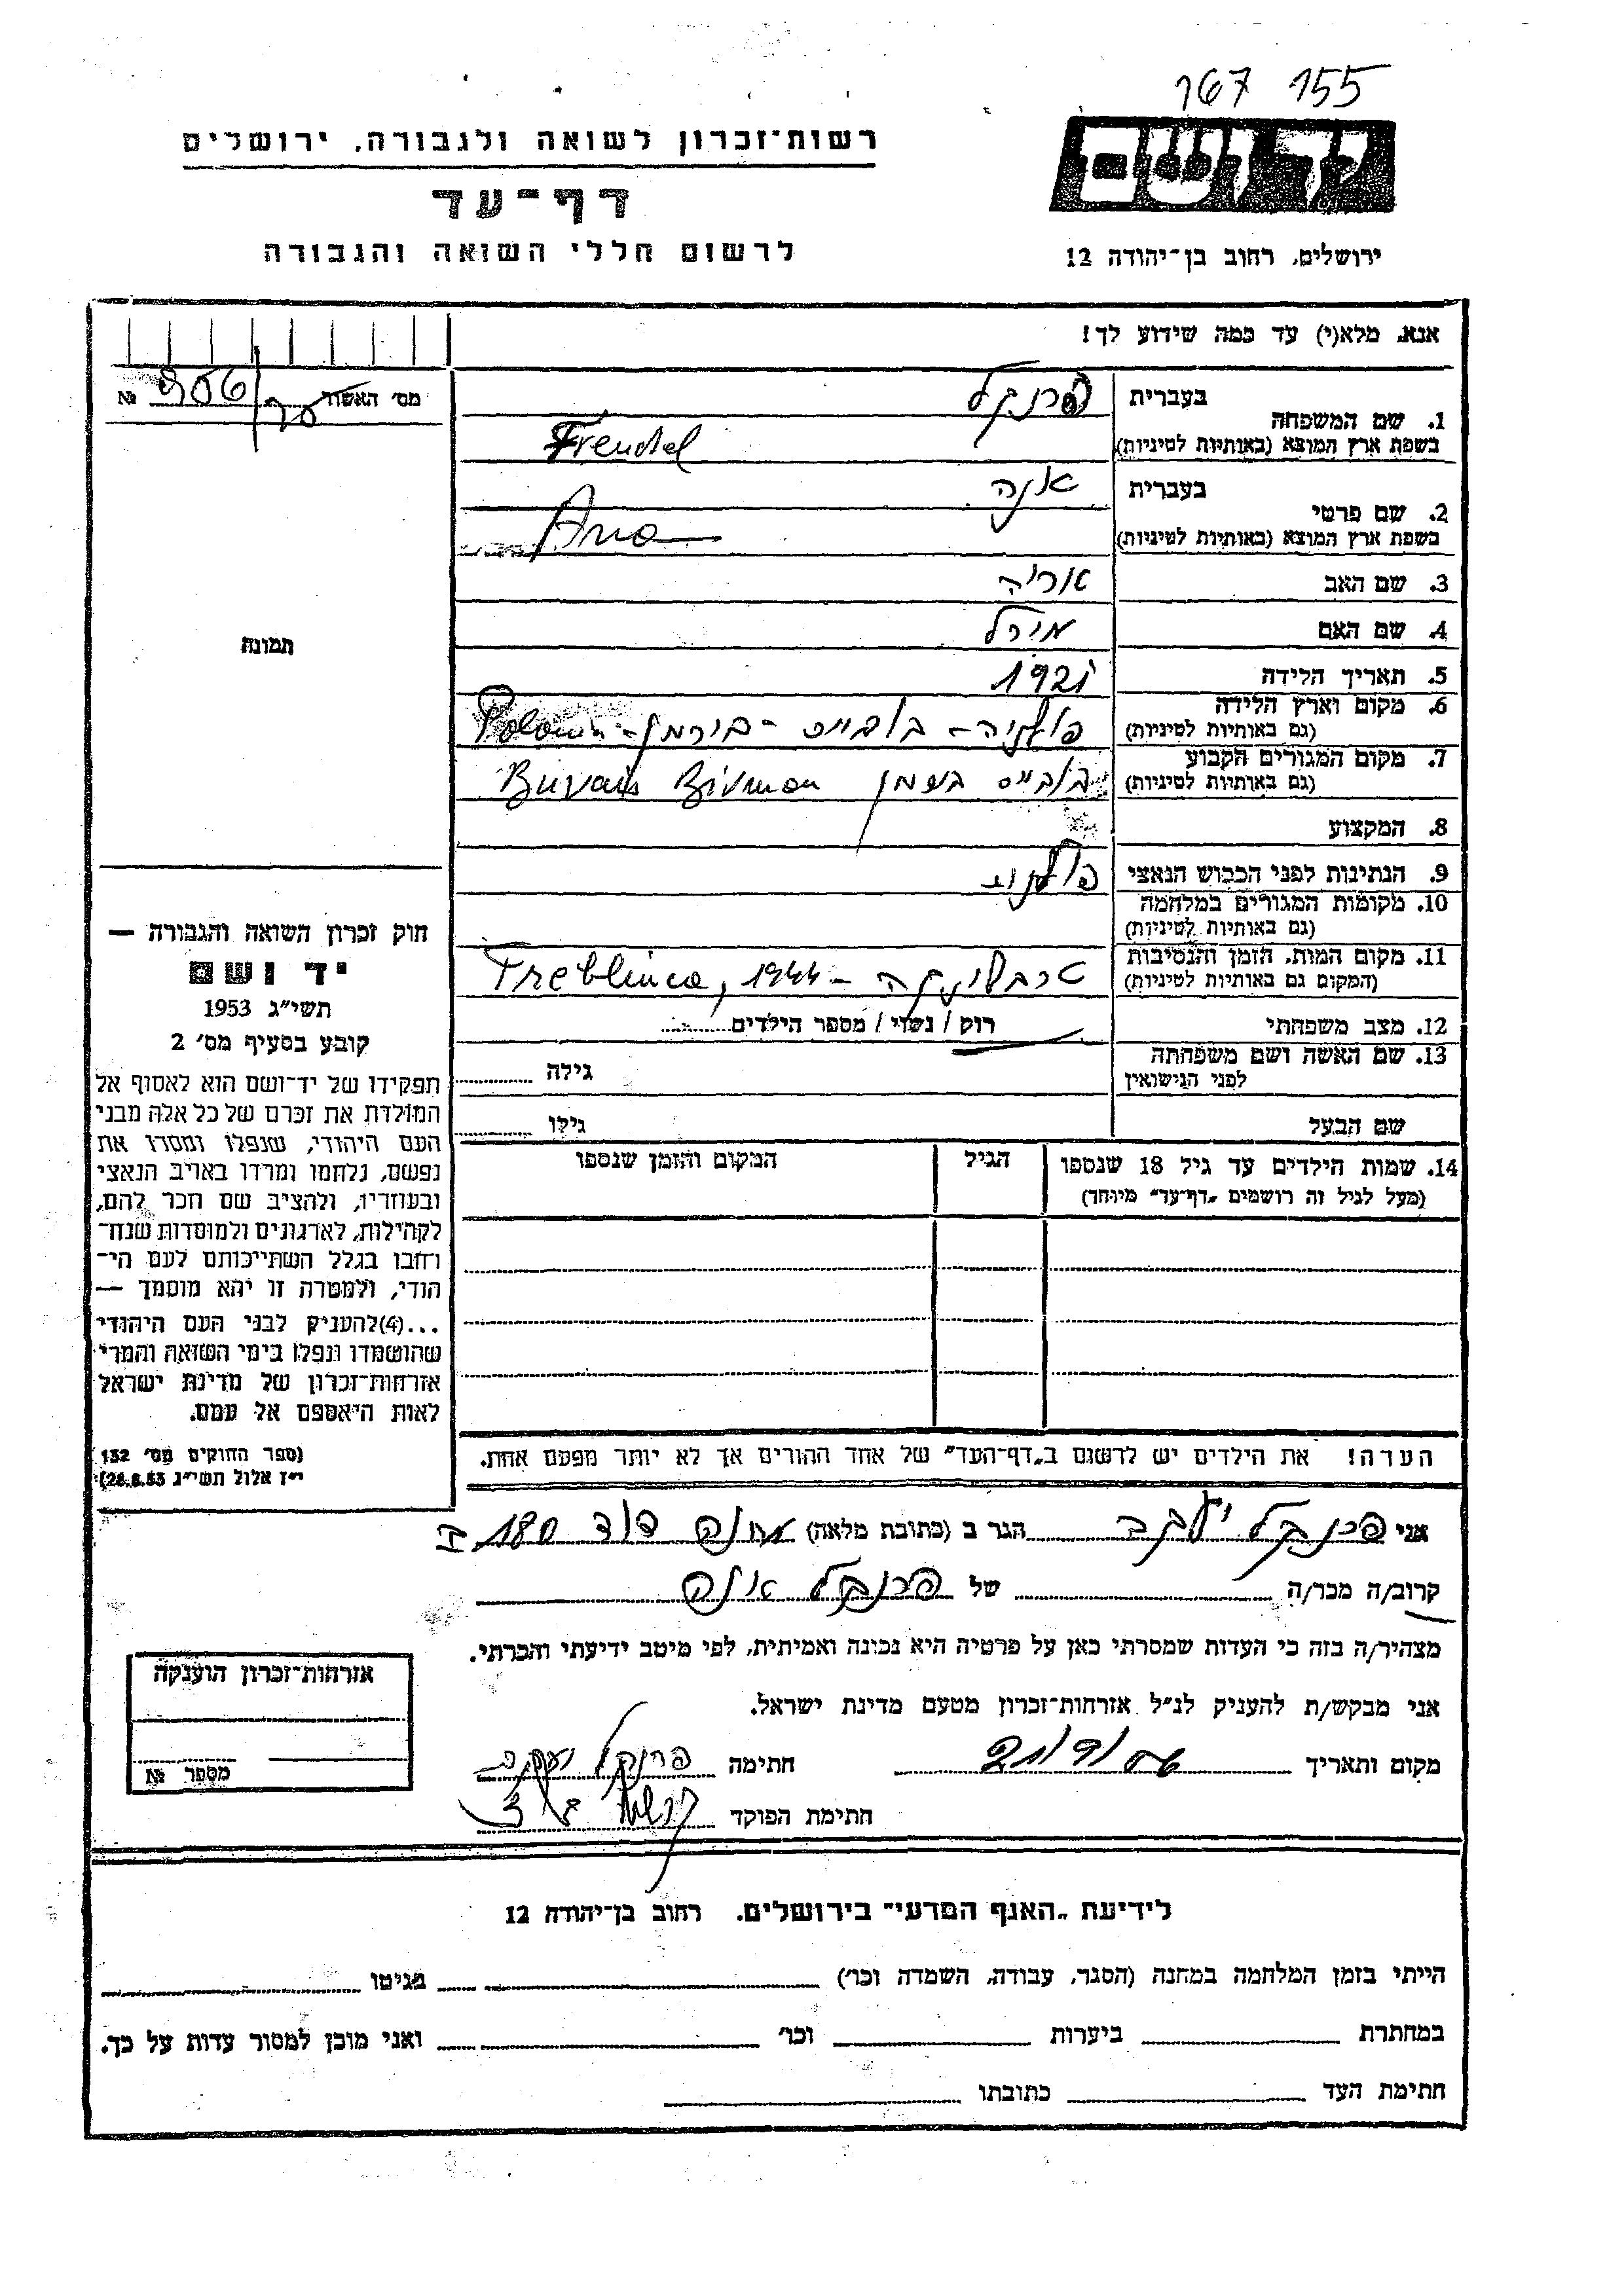 167 155
רשות־זכרון לשואה ולגבורה, ירושלים
דף־עד
לרשום חללי השואה והגבורה
יד ושם
ירושלים, רחוב בן־יהודה 12
אנא, מלא(י) עד כמה שידוע לך!
מס׳ האשה № 956
1. שם המשפחה
בעברית פרנקל
בשפת ארץ המוצא (באותיות לטיניות) Frenkel
2. שם פרטי
בעברית אנה
בשפת ארץ המוצא (באותיות לטיניות) Ana
3. שם האב אריה
4. שם האם מירל
5. תאריך הלידה 1921
6. מקום וארץ הלידה
(גם באותיות לטיניות) פולניה -
7. מקום המגורים הקבוע
(גם באותיות לטיניות)
8. המקצוע
9. הנתינות לפני הכבוש הנאצי פולנית
10. מקומות המגורים במלחמה
(גם באותיות לטיניות)
11. מקום המות, הזמן והנסיבות
(המקום גם באותיות לטיניות) טרבלינקה - Treblinca, 1944
12. מצב משפחתי רוק / נשוי / מספר הילדים
13. שם האשה ושם משפחתה
לפני הנישואין גילה
שם הבעל גילו
14. שמות הילדים עד גיל 18 שנספו
(מעל לגיל זה רושמים „דף־עד״ מיוחד)
הגיל
המקום והזמן שנספו
הערה! את הילדים יש לרשום ב„דף־העד״ של אחד ההורים אך לא יותר מפעם אחת.
תמונה
חוק זכרון השואה והגבורה —
יד ושם
תשי״ג 1953
קובע בסעיף מס׳ 2
תפקידו של יד־ושם הוא לאסוף אל
המולדת את זכרם של כל אלה מבני
העם היהודי, שנפלו ומסרו את
נפשם, נלחמו ומרדו באויב הנאצי
ובעוזריו, ולהציב שם וזכר להם,
לקהילות, לארגונים ולמוסדות שנח־
רבו בגלל השתייכותם לעם הי־
הודי, ולמטרה זו יהא מוסמך —
...(4) להעניק לבני העם היהודי
שהושמדו ונפלו בימי השואה והמרי
אזרחות־זכרון של מדינת ישראל
לאות היאספם אל עמם.
(ספר החוקים מס׳ 132
י״ז אלול תשי״ג 28.8.53)
אני פרנקל יעקב הגר ב (כתובת מלאה) מחנה דוד 180 I
קרוב/ה מכר/ה של פרנקל אנה
מצהיר/ה בזה כי העדות שמסרתי כאן על פרטיה היא נכונה ואמיתית, לפי מיטב ידיעתי והכרתי.
אני מבקש/ת להעניק לנ״ל אזרחות־זכרון מטעם מדינת ישראל.
מקום ותאריך חתימה פרנקל יעקב
חתימת הפוקד
אזרחות־זכרון הוענקה
מספר №
לידיעת „האגף המדעי״ בירושלים, רחוב בן־יהודה 12
הייתי בזמן המלחמה במחנה (הסגר, עבודה, השמדה וכו׳) בגיטו
במחתרת ביערות וכו׳ ואני מוכן למסור עדות על כך.
חתימת העד כתובתו